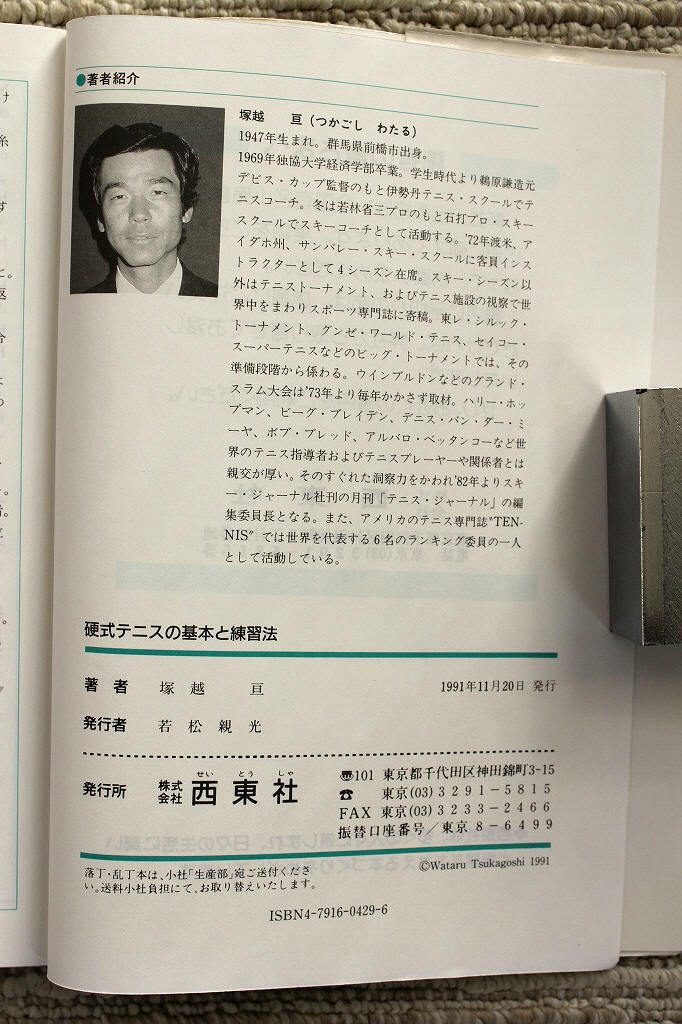 ●著者紹介
塚越 亘(つかごし わたる)
1947年生まれ。群馬県前橋市出身。
1969年独協大学経済学部卒業。学生時代より鵜原謙造元
デビス・カップ監督のもと伊勢丹テニス・スクールでテ
ニスコーチ。冬は若林省三プロのもと石打プロ・スキー
スクールでスキーコーチとして活動する。'72年渡米、ア
イダホ州、サンバレー・スキー・スクールに客員インス
トラクターとして4シーズン在席。スキー・シーズン以
外はテニストーナメント、およびテニス施設の視察で世
界中をまわりスポーツ専門誌に寄稿。東レ・シルック・
トーナメント、グンゼ・ワールド・テニス、セイコー・
スーパーテニスなどのビッグ・トーナメントでは、その
準備段階から係わる。ウインブルドンなどのグランド・
スラム大会は'73年より毎年かかさず取材。ハリー・ホッ
プマン、ビーグ・ブレイデン、デニス・バン・ダー・ミ
ーヤ、ボブ・ブレッド、アルバロ・ベッタンコーなど世
界のテニス指導者およびテニスプレーヤーや関係者とは
親交が厚い。そのすぐれた洞察力をかわれ'82年よりスキ
ー・ジャーナル社刊の月刊「テニス・ジャーナル」の編
集委員長となる。また、アメリカのテニス専門誌"TEN-
NIS"では世界を代表する6名のランキング委員の一人
として活動している。
硬式テニスの基本と練習法
著者 塚越 亘 1991年11月20日 発行
発行者 若松親光
発行所 株式会社 西東社 せいとうしゃ
〠101 東京都千代田区神田錦町3-15
☎ 東京(03)3291-5815
FAX 東京(03)3233-2466
振替口座番号/東京8-6499
©Wataru Tsukagoshi 1991
落丁・乱丁本は、小社「生産部」宛ご送付くださ
い。送料小社負担にて、お取り替えいたします。
ISBN4-7916-0429-6